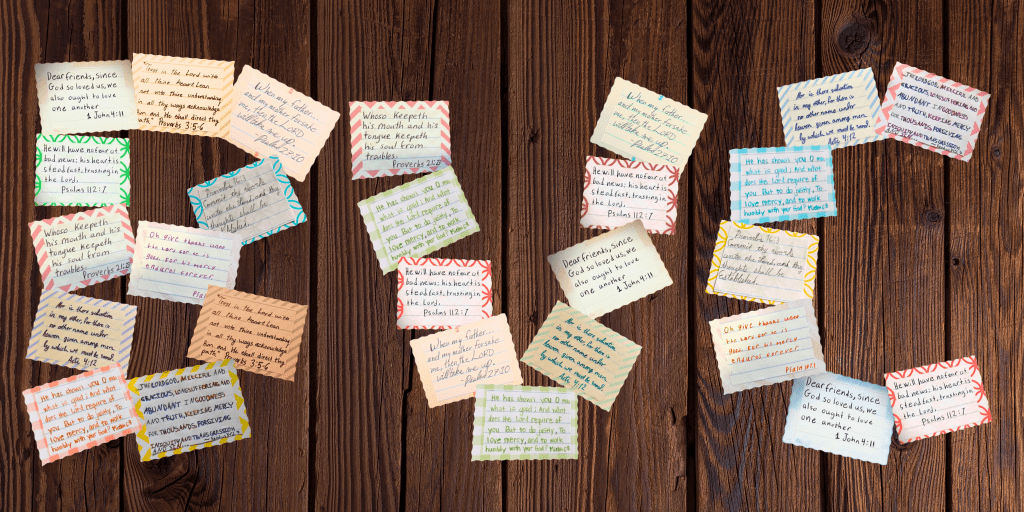 Dear friends, since
God so loved us, we
also ought to love
one another.
1 John 4:11
Trust in the Lord with
all thine heart Lean
not unto thine understanding
in all thy ways acknowledge
him and He shall direct thy
path" Proverbs 3:5-6
When my father...
and my mother forsake
me, then the LORD
will take me up.
Psalm 27:10
He will have no fear of
bad news; his heart is
steadfast, trusting in
the Lord.
Psalms 112:7
Proverbs 16:3
Commit thy works
unto the Lord, and thy
thoughts shall be
Whoso Keepeth
his mouth and his
tongue Keepeth
his soul from
troubles.
Proverbs 21:23
Oh give thanks unto
the Lord for he is
good for his mercy
endures forever
Nor is there salvation
in any other, for there is
no other name under
heaven given among men,
by which we must be saved.
Acts 4:12
Trust in the Lord with
all thine heart Lean
not unto thine understanding
in all thy ways acknowledge
him and He shall direct thy
path." Proverbs 3:5-6
He has shown you O man
what is good; And what
does the Lord require of
you But to do justly, To
love mercy, and to walk
humbly with your God! Micah 6:8
THE LORD GOD, MERCIFUL AND
GRACIOUS, LONGSUFFERING, AND
ABUNDANT IN GOODNESS
AND TRUTH, KEEPING MERCY
FOR THOUSANDS, FORGIVING
INIQUITY AND TRANSGRESSION
Whoso Keepeth
his mouth and his
tongue Keepeth
his soul from
troubles.
Proverbs 21:23
He has shown you O man
what is good; And what
does the Lord require of
you But to do justly, To
love mercy, and to walk
humbly with your God! Micah 6:8
He will have no fear of
bad news; his heart is
steadfast, trusting in
the Lord.
Psalms 112:7
When my father...
and my mother forsake
me, then the LORD
will take me up.
Psalm 27:10
He has shown you O man
what is good; And what
does the Lord require of
you But to do justly, To
love mercy, and to walk
humbly with your God! Micah 6:8
Nor is there salvation
in any other, for there is
no other name under
heaven given among men,
by which we must be saved.
Acts 4:12
Dear friends, since
God so loved us, we
also ought to love
one another.
1 John 4:11
He will have no fear of
bad news; his heart is
steadfast, trusting in
the Lord.
Psalms 112:7
When my father...
and my mother forsake
me, then the LORD
will take me up.
Psalm 27:10
THE LORD GOD, MERCIFUL AND
GRACIOUS, LONGSUFFERING, AND
ABUNDANT IN GOODNESS
AND TRUTH, KEEPING MERCY
FOR THOUSANDS, FORGIVING
INIQUITY AND TRANSGRESSION
Nor is there salvation
in any other, for there is
no other name under
heaven given among men,
by which we must be saved.
Acts 4:12
He has shown you O man
what is good; And what
does the Lord require of
you But to do justly, To
love mercy, and to walk
humbly with your God! Micah 6:8
Proverbs 16:3
Commit thy works
unto the Lord, and thy
thoughts shall be
established.
Oh give thanks unto
the Lord for he is
good for his mercy
endures forever
Dear friends, since
God so loved us, we
also ought to love
one another.
1 John 4:11
He will have no fear of
bad news; his heart is
steadfast, trusting in
the Lord.
Psalms 112:7